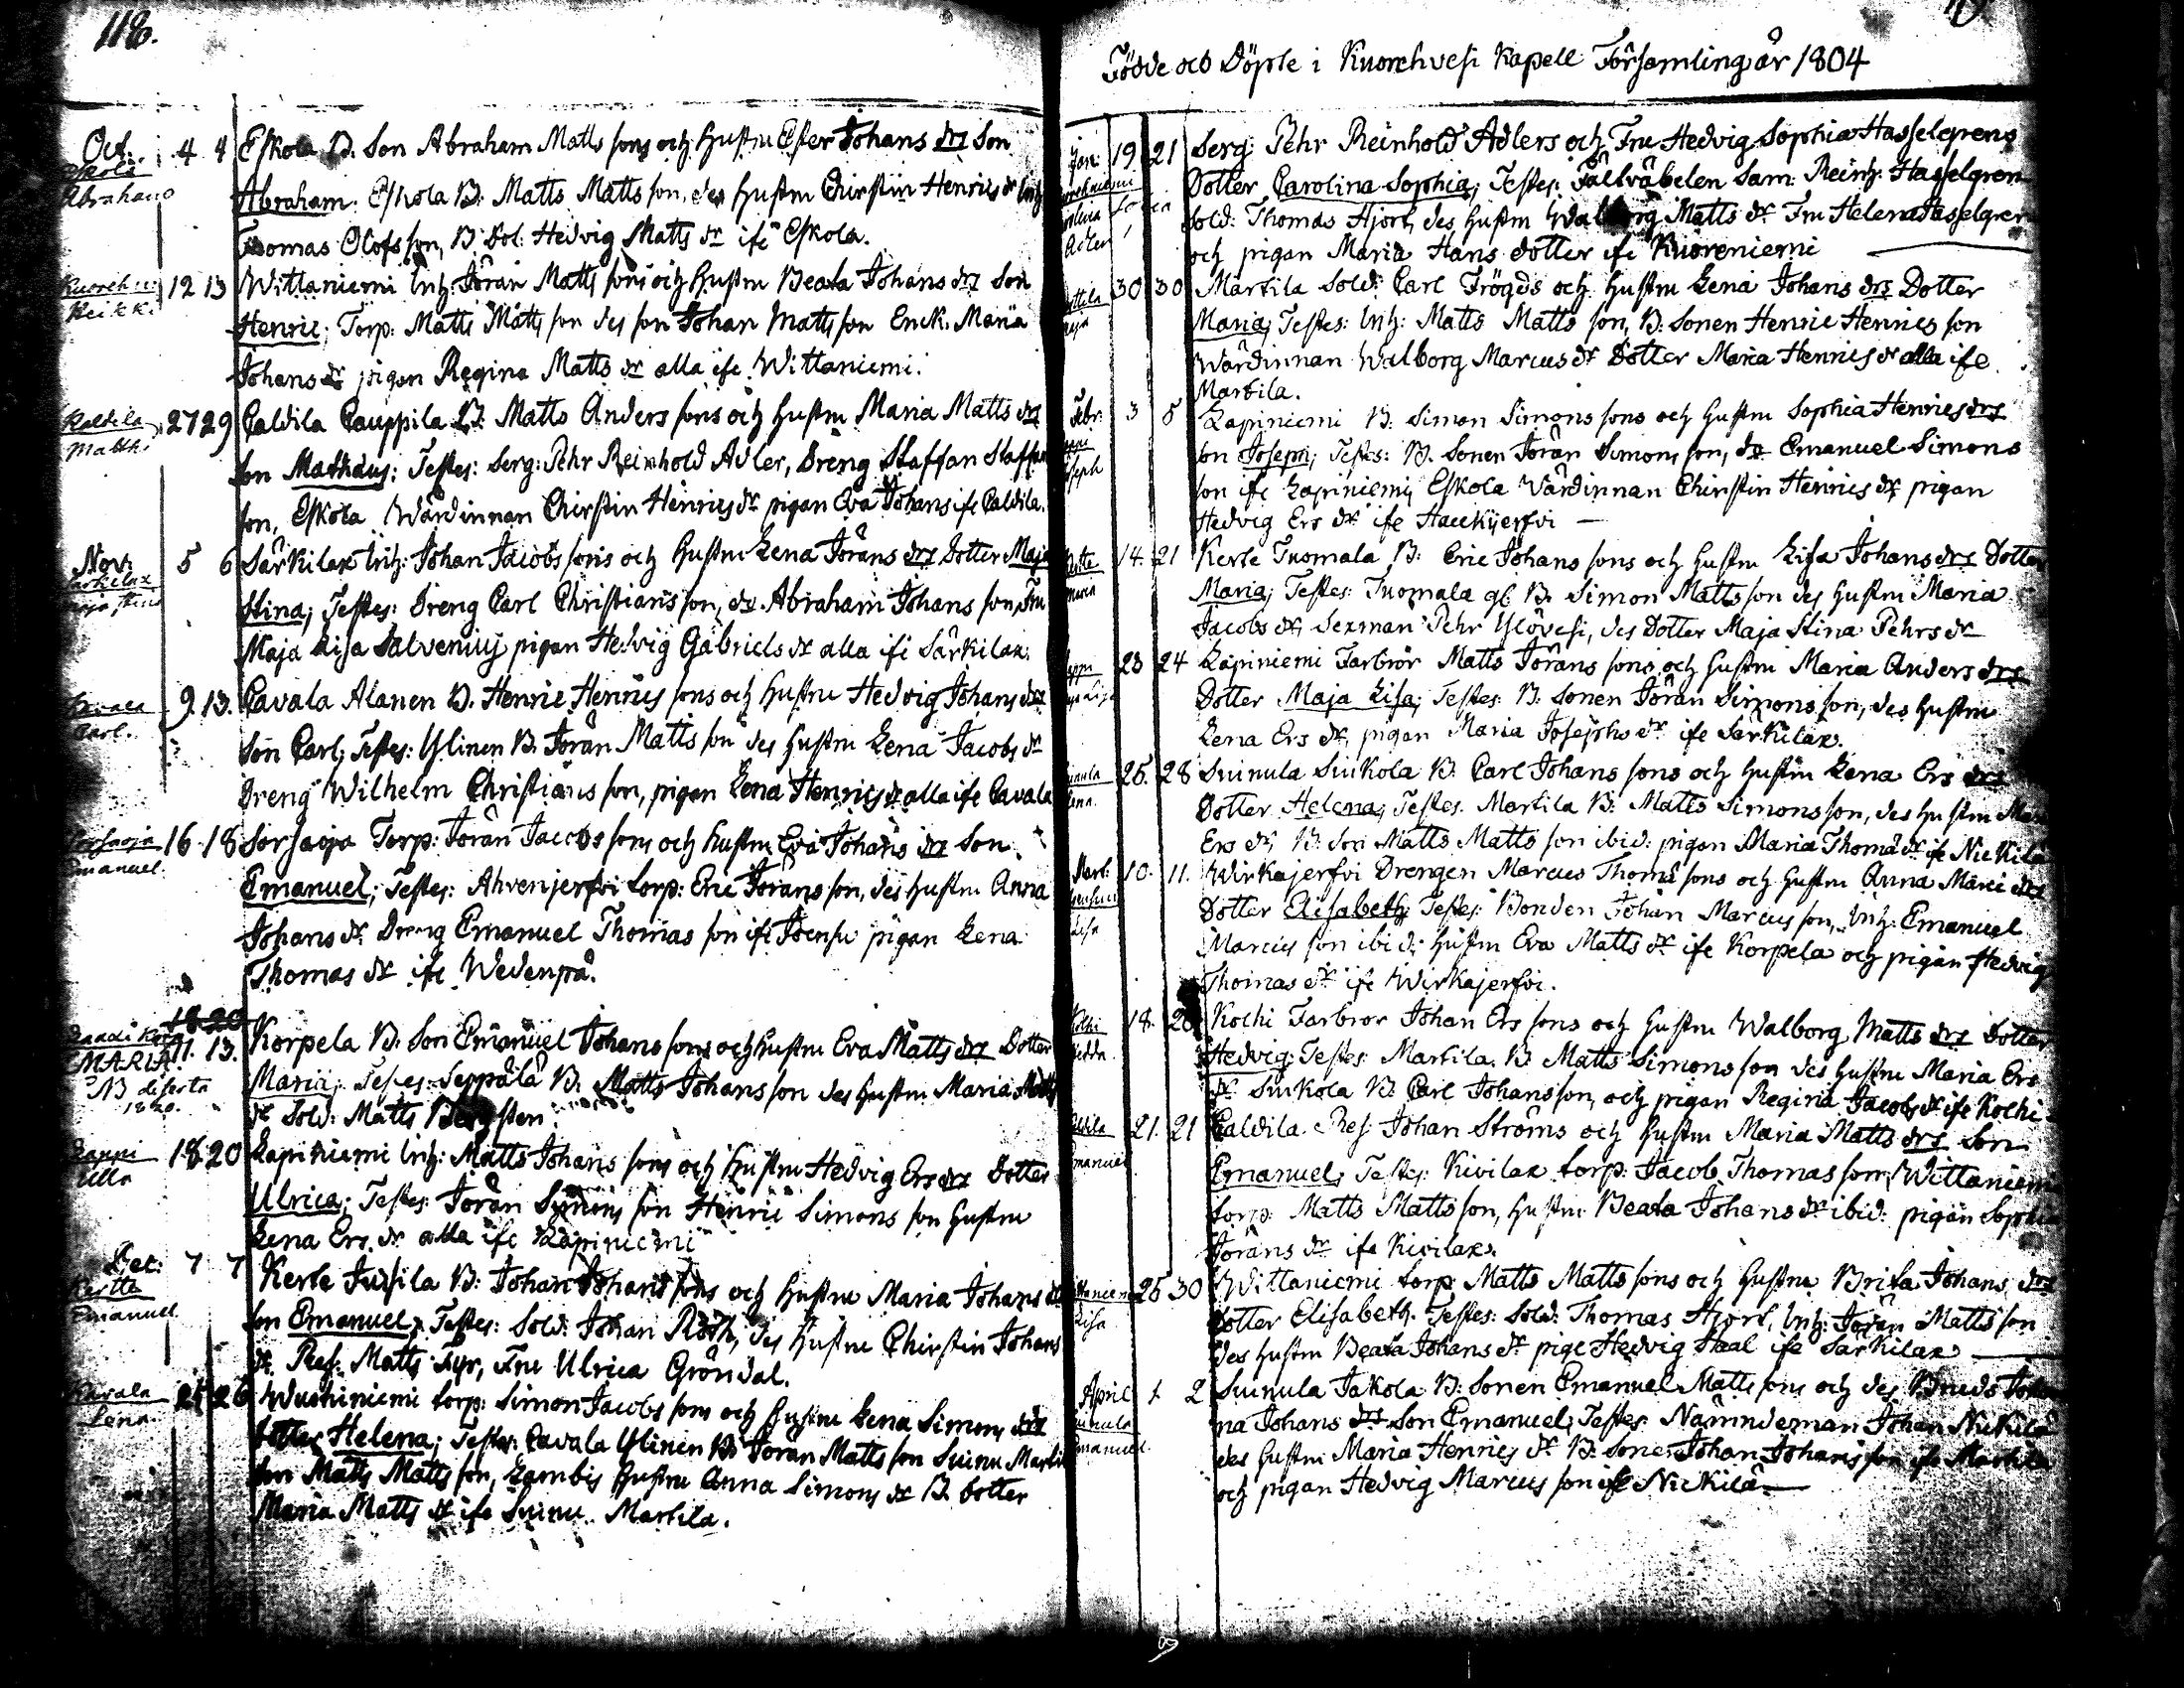 118.
Oct. 4 4 Eskola B. Son Abraham Matts sons och hustru Ester Johans drs Son
Eskola
Abraham
Abraham. Eskola B: Matts Matts son, des hustru Chirstin Henrics dr Inh:
Thomas Olofs son, B: dot: Hedvig Matts dr ifr Eskola.
12 13 Wittaniemi Inh: Jöran Matts sons och hustru Beata Johans drs Son
Henric; Torp: Matts Matts son des son Johan Matts son Enck. Maria
Johans dr pigan Regina Matts dr alla ifr Wittaniemi.
Caldila
Matth:
27 29 Caldila Cauppila B: Matts Anders sons och hustru Maria Matts drs
son Mathäus; Testes: Serg: Pehr Reinhold Adler, Dreng Staffan Staffans
son, Eskola Wärdinnan Chirstin Henrics dr pigan Eva Johans ifr Caldila.
Nov. 5 6 Särkilax Inh: Johan Jacobs sons och hustru Lena Jörans drs Dotter Maja
Särkilax
Maja Stina
Stina; Testes: Dreng Carl Christians son, dr. Abraham Johans son, Fru
Maja Lisa Salvenius pigan Hedvig Gabriels dr alla ifr Särkilax.
Cavala
Carl.
9. 13. Cavala Alanen B. Henric Henrics sons och hustru Hedvig Johans drs
Son Carl; Testes: Ylinen B. Jöran Matts son des hustru Lena Jacobs dr
Dreng Wilhelm Christians son, pigan Lena Henrics dr alla ifr Cavala
Emanuel.
16 18 Sorsaoja Torp: Jöran Jacobs sons och hustru Eva Johans drs Son
Emanuel; Testes: Ahvenjerfvi torp: Eric Jörans son, des hustru Anna
Johans dr Dreng Emanuel Thomas son ifr Joensu pigan Lena
Thomas dr ifr Wedenpä.
18 20
MARIA 11. 13. Korpela B. Son Emanuel Johans sons och hustru Eva Matts drs Dotter
Maria; Testes: Seppälä B. Matts Johans son des hustru Maria Matts
dr Sold: Matts Bergsten.
Lappi
Ulla
18 20 Lapiniemi Inh: Matts Johans sons och hustru Hedvig Ers drs Dotter
Ulrica; Testes: Jöran Simons son Henric Simons son hustru
Lena Ers dr alla ifr Lapiniemi
Dec: 7 7 Kerte Jussila B: Johan Johans sons och hustru Maria Johans drs
Kertte
Emanuel
Son Emanuel; Testes: Sold: Johan Röth, des hustru Chirstin Johans
dr Ref: Matts Fyr, Fru Ulrica Gröndal.
Kavala
Lena.
25 26 Wuohiniemi torp: Simon Jacobs sons och hustru Lena Simons drs
dotter Helena; Testes: Cavala Ylinen B: Jöran Matts son Suinu Martila
son Matts Matts son, Lambis hustru Anna Simons dr B. dotter
Maria Matts dr ifr Suinu Martila.
Födde och Döpte i Kuorehvesi Kapell Församling år 1804
Jan: 19 21 Serg: Pehr Reinhold Adlers och Fru Hedvig Sophia Hasselgrens
Adler
Dotter Carolina Sophia; Testes: Fältväbelen Sam: Reinh: Hasselgren
Sold: Thomas Hjort, des hustru Walborg Matts dr Fru Helena Hasselgren
och pigan Maria Hans dotter ifr Kuoreniemi
30 30 Martila Sold: Carl Frögds och hustru Lena Johans drs Dotter
Maria; Testes: Inh: Matts Matts son, B: Sonen Henric Henrics son
Wärdinnan Walborg Marcus dr Dotter Maria Henrics dr alla ifr
Martila.
Febr: 3 5 Lapiniemi B: Simon Simons sons och hustru Sophia Henrics drs
Joseph
son Joseph; Testes: B. Sonen Jöran Simons son, dr Emanuel Simons
son ifr Lapiniemi, Eskola Wärdinnan Chirstin Henrics dr pigan
Hedvig Ers dr ifr Haukijerfvi —
Kerte
Maria
14. 21 Kerte Tuomala B: Eric Johans sons och hustru Lisa Johans drs Dotter
Maria; Testes: Tuomala gl B. Simon Matts son des hustru Maria
Jacobs dr, Sexman Pehr Ylövesi, des Dotter Maja Stina Pehrs dr
23 24 Lapiniemi Farbror Matts Jörans sons och hustru Maria Anders drs
Dotter Maja Lisa; Testes: B: Sonen Jöran Simons son, des hustru
Lena Ers dr, pigan Maria Josephs dr ifr Särkilax.
25. 28 Suinula Siukola B. Carl Johans sons och hustru Lena Ers drs
Dotter Helena; Testes. Martila B: Matts Simons son, des hustru Maria
Ers dr, B: Son Matts Matts son ibid: pigan Maria Thomä dr ifr Nickilä
Mart: 10. 11. Wirkajerfvi Drengen Marcus Thomä sons och hustru Anna Marci drs
Lisa
Dotter Elisabeth; Testes: Bonden Johan Marcus son, Inh: Emanuel
Marcus son ibid: hustru Eva Matts dr ifr Korpela och pigan Hedvig
Thomas dr ifr Wirkajerfvi.
Kolhi
Hedda
18. 20 Kolhi Farbror Johan Ers sons och hustru Walborg Matts drs Dotter
Hedvig; Testes: Martila B. Matts Simons son des hustru Maria Ers
dr Siukola B. Carl Johans son, och pigan Regina Jacobs dr ifr Kolhi
Caldila
Emanuel
21. 21 Caldila Ref: Johan Ströms och hustru Maria Matts drs Son
Emanuel; Testes: Kivilax torp: Jacob Thomas son, Wittaniemi
torp: Matts Matts son, hustru Beata Johans dr ibid: pigan Sophia
Jörans dr ifr Kivilax.
Lisa
25 30 Wittaniemi torp Matts Matts sons och hustru Brita Johans drs
dotter Elisabeth. Testes: Sold: Thomas Hjort, Inh: Jöran Matts son
des hustru Beata Johans dr pige Hedvig Staal ifr Särkilax
April 1 2 Suinula Jakola B: Sonen Emanuel Matts sons och des
Suinula
Emanuel.
na Johans drs Son Emanuel; Testes: Nämndeman Johan Nickilä
des hustru Maria Henrics dr B: Sonen Johan Johans son ifr Martila
och pigan Hedvig Marcus son ifr Nickilä